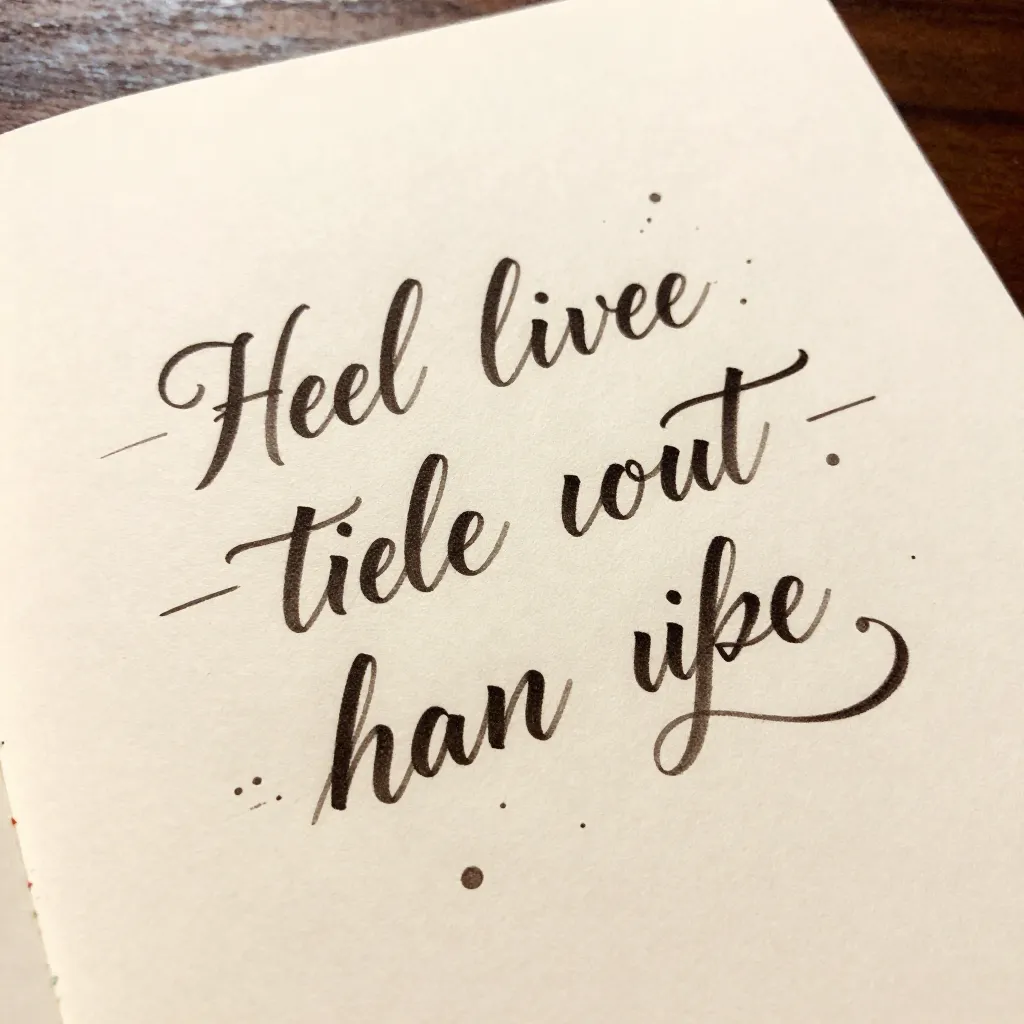 Heel livee
tiele wout
han